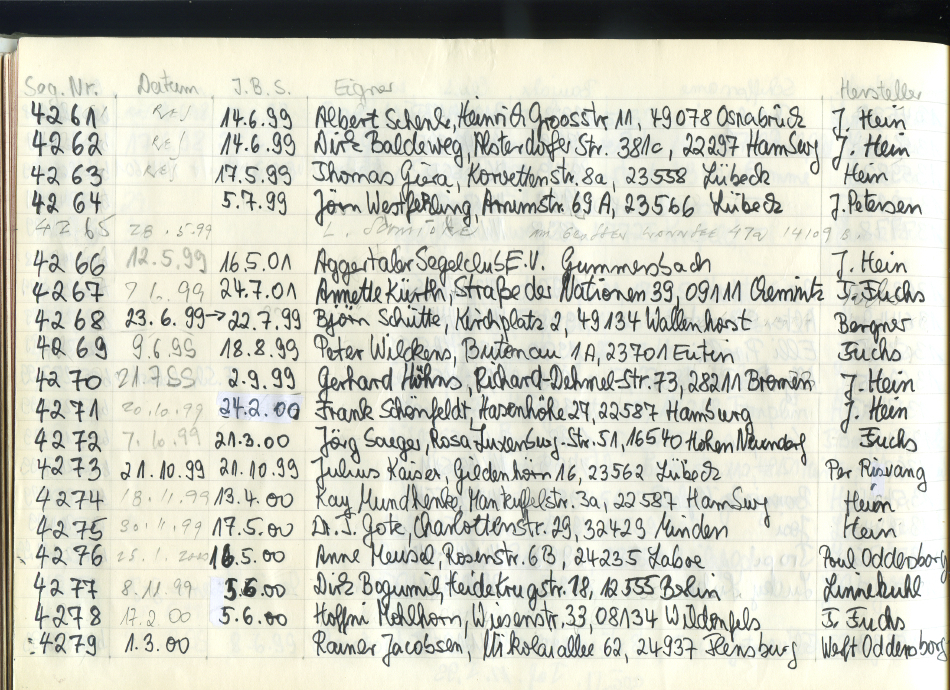 Seg. Nr. Datum J.B.S. Eigner Hersteller
4261 14.6.99 Albert Schenk, Heinrich Groosstr 11, 49078 Osnabrück J. Hein
4262 14.6.99 Dirk Baldeweg, Alsterdorfer Str. 381c, 22297 Hamburg J. Hein
4263 17.5.99 Thomas Korvettenstr. 8a, 23558 Lübeck Hein
4264 5.7.99 Jörn Westfehling, Arnimstr. 69 A, 23566 Lübeck J. Petersen
4265 28.5.99 L. am großen Wannsee 47a 14109 B.
4266 12.5.99 16.5.01 Aggertaler Segelclub E.V. Gummersbach J. Hein
4267 99 24.7.01 Annette Kürth, Straße der Nationen 39, 09111 Chemnitz Fuchs
4268 23.6.99→22.7.99 Björn Schütte, Kirchplatz 2, 49134 Wallenhorst Bergner
4269 9.6.99 18.8.99 Peter Wilckens, Butenau 1A, 23701 Eutin Fuchs
4270 21.7.99 2.9.99 Gerhard Höhns, Richard-Dehmel-Str. 73, 28211 Bremen J. Hein
4271 20.10.99 24.2.00 Frank Schönfeldt, Hasenhöhe 27, 22587 Hamburg J. Hein
4272 7.10.99 21.3.00 Jörg Saeger, Rosa-Luxemburg-Str. 51, 16540 Hohen Neuendorf Fuchs
4273 21.10.99 21.10.99 Julius Kaiser, 16, 23562 Lübeck Per Risvang
4274 18.11.99 13.4.00 Kay Mundhenke, Manteuffelstr. 3a, 22587 Hamburg Hein
4275 30.11.99 17.5.00 Dr. J. Gote, Charlottenstr. 29, 32429 Minden Hein
4276 25.1.2000 16.5.00 Anne Meusel, Rosenstr. 6B, 24235 Laboe Poul Oddersborg
4277 8.11.99 5.6.00 Dirk Bogumil, Heidekrugstr. 78, 12555 Berlin Linnekuhl
4278 17.2.00 5.6.00 Hoffni Mehlhorn, Wiesenstr. 33, 08134 Wildenfels F. Fuchs
4279 1.3.00 Rainer Jacobsen, Nikolaiallee 62, 24937 Flensburg Werft Oddersborg